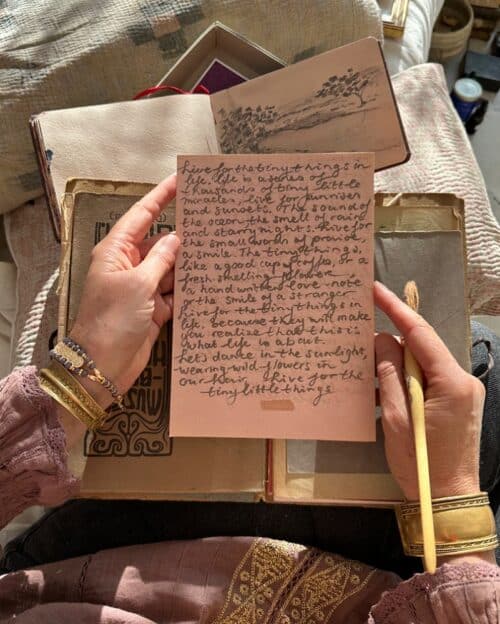 live for the tiny things in
life. life is a series of
thousands of tiny little
miracles, live for sunrises
and sunsets. The sound of
the ocean. the smell of rain
and starry nights. live for
the small words of praise,
a smile. The tiny things,
like a good cup of coffee, or a
fresh smelling flower
a hand written love note
or the smile of a stranger
live for the tiny things in
life. because they will make
you realize that this is
what life is about.
Let's dance in the sunlight,
wearing wild-flowers in
our hair live for the
tiny little things